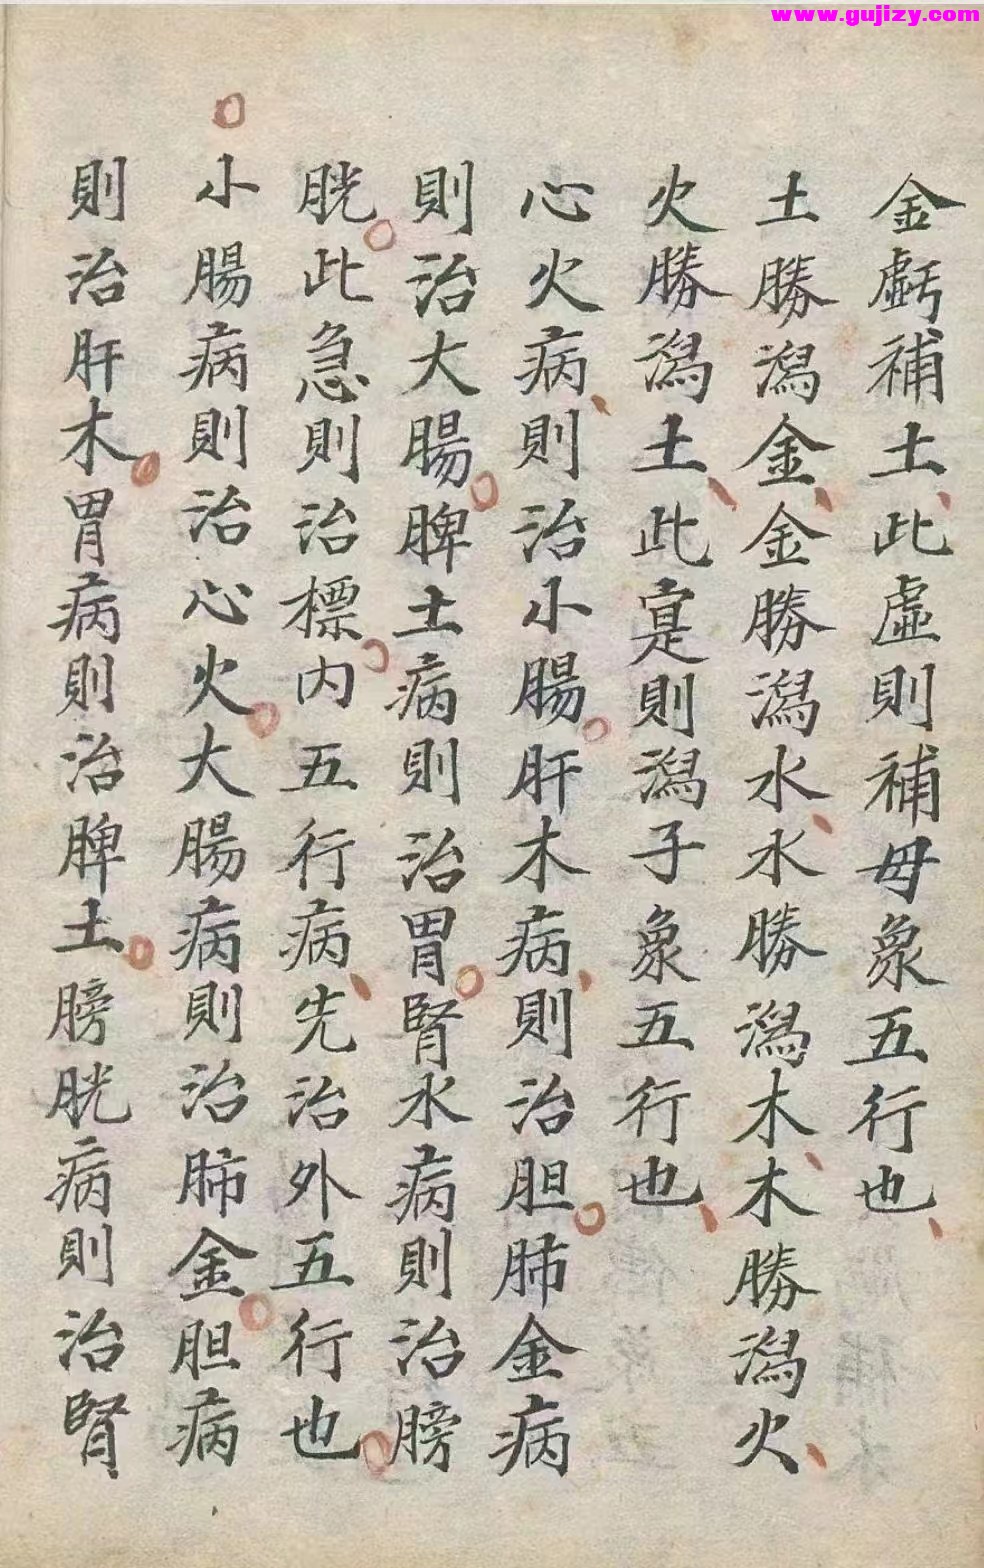 www.gujizy.com
金虧補土此虛則補母象五行也
土勝瀉金金勝瀉水水勝瀉木木勝瀉火
火勝瀉土此寔則瀉子象五行也
心火病則治小腸肝木病則治胆肺金病
則治大腸脾土病則治胃腎水病則治膀
胱此急則治標内五行病先治外五行也
小腸病則治心火大腸病則治肺金胆病
則治肝木胃病則治脾土膀胱病則治腎